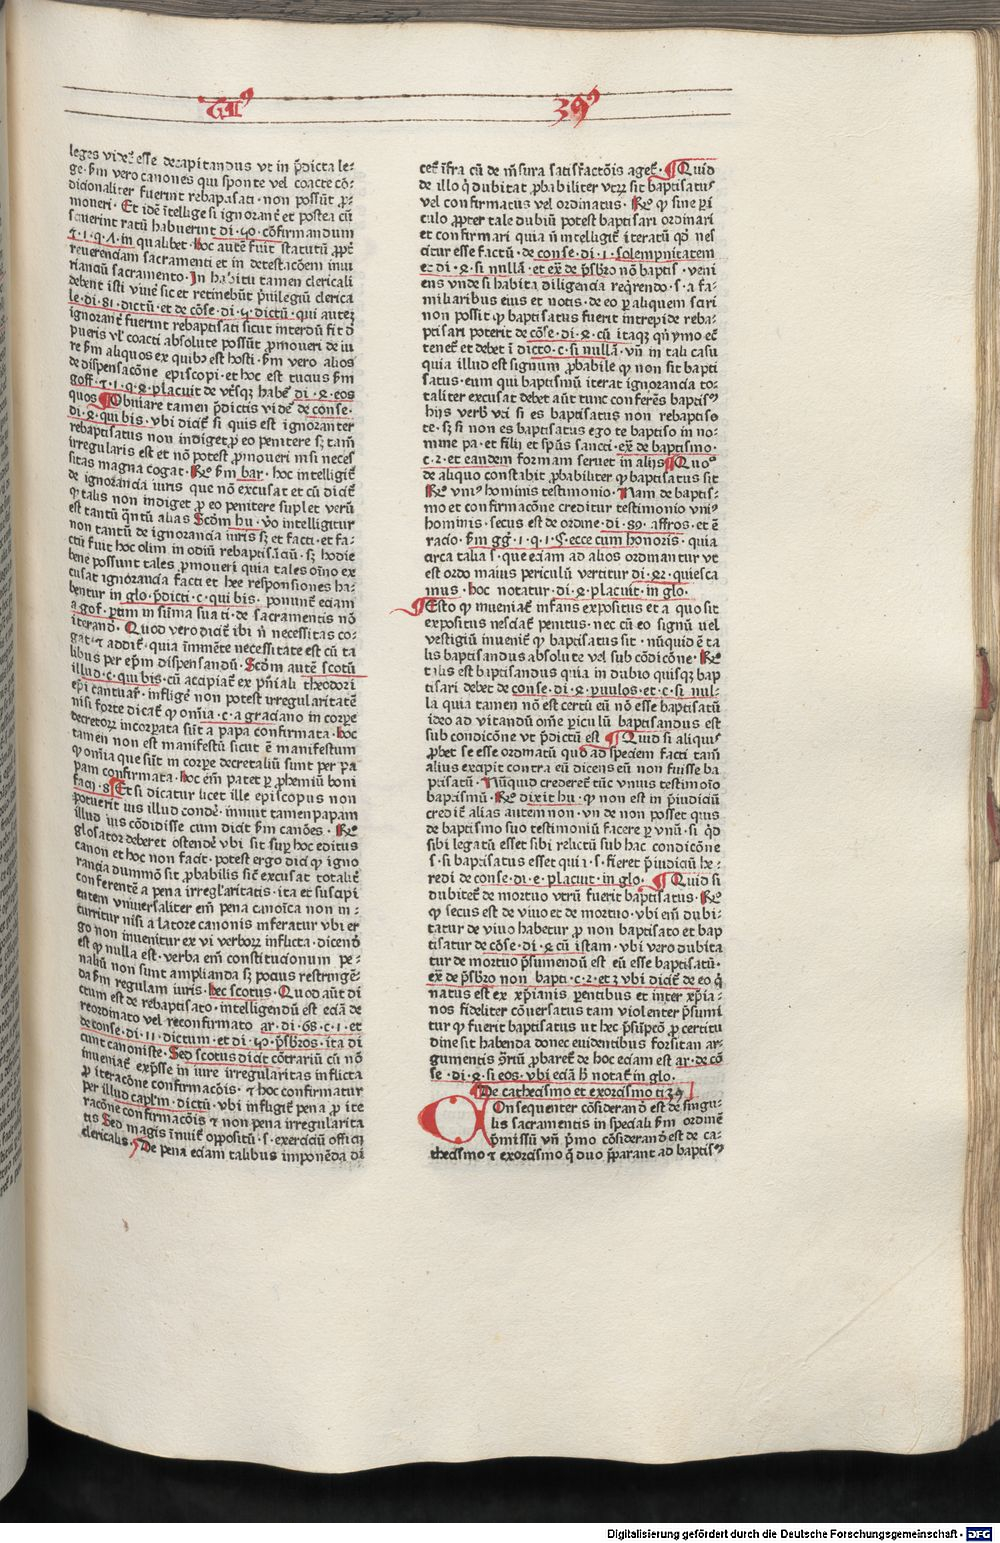 Tit9 399
leges viđet᷑ esse decapitandus vt in p̄dicta le-
ge· s̄m vero canones qui sponte vel coacte cō-
dicionaliter fuerint rebapasati· non possūt ꝓ-
moueri· Et idē ītellige si ignorant᷑ et postea cū
sciuerint ratū habuerint di·50·cōfirmandum
7·1·q·1·in qualibet· hoc autē fuit statutū ꝓpt᷑
reuerendam sacramenti et in detestacōem iniu
riancū sacramento· In habitu tamen clericali
debent isti viuē sic et retinebūt p̄uilegiū clerica
le·di·81·dictū·et de cōse·di·5·dictū·qui autez
ignorant᷑ fuerint rebaptisati sicut interdū fit d̄
pueris vl᷑ coacti absolute possūt ꝓmoueri de iu
re s̄m aliquos ex quibꝰ est hosti· s̄m vero alios
de dispensacōne episcopi·et hoc est tucius s̄m
goff·7·1·q·2·placuit de vt᷑sꝫ habē di·2·eos
quos ¶ Obuiare tamen p̄dictis videt᷑ de conse·
di·2·qui bis·vbi dicit᷑ si quis est ignoranter
rebaptisatus non indiget ꝓ eo penitere sꝫ tam̄
irregularis est et nō potest ꝓmoueri nisi neces
sitas magna cogat· Rꝰ s̄m bar· hoc intelligit᷑
de ignorancia iuris que nō excusat et cū dicit᷑
ꝙ talis non indiget ꝓ eo penitere suplet verū
est tantū q̄ntū alias Scdm hu· v̄o intelligitur
non tantū de ignorancia iuris sꝫ et facti·et fa-
ctū fuit hoc olim in odiū rebaptisaciū· sꝫ hodie
bene possunt tales ꝓmoueri quia tales oīno ex
cusat ignorancia facti et hee responsiones ha-
bentur in glo·p̄dicti·c·qui bis· ponunt᷑ eciam
a gof· ptim in sūma sua ti·de sacramentis nō
iterand̄· Quod vero dicit᷑ ibi n̄ necessitas co-
gat·7 addit᷑·quia īminēte necessitate est cū ta
libus per epm̄ dispensandū· Scdm autē scotū
illud·c·qui bis·cū accipiat᷑ ex pn̄iali theodori
ep̄i cantuar᷑·infligē non potest irregularitatē
nisi forte dicat᷑ ꝙ om̄ia·c·a graciano in corpe
decretorꝝ incorꝑata sūt a papa confirmata·hoc
tamen non est manifestū sicut ē manifestum
ꝙ om̄ia que sūt in corpe decretaliū sunt per pa
pam confirmata· hoc em̄ patet ꝑ ꝓhemiū boni
faci·8· ¶ Et si dicatur licet ille episcopus non
potuerit ius illud condē· innuit tamen papam
illud ius cōdidisse cum dicit s̄m canōes· Rꝰ
glosator deberet ostendē vbi sit suꝑ hoc editus
canon et hoc non facit· potest ergo dici ꝙ igno
rancia dummō sit ꝓbabilis sic᷑ excusat totalit᷑
conferentē a pena irregl᷑aritatis·ita et suscapi
entem vniuersaliter em̄ pena canoīca non in-
curritur nisi a latore canonis inferatur vbi er
go non inuenitur ex vi verborꝝ inflicta·dicend̄
est ꝙ nulla est· verba em̄ constitucionum pe-
naliū non sunt amplianda sꝫ pocius restringē-
da s̄m regulam iuris· hec scotus· Quod aūt di
ctum est de rebaptisato·intelligendū est eciā de
reordinato vel reconfirmato ar·di·68·c·1·et
de conse·di·11·dictum·et di·50·p̄sbros·ita di
cunt canoniste· Sed scotus dicit cōtrariū cū nō
inueniat᷑ exp̄sse in iure irregularitas inflicta
ꝓ iteracōne confirmacōis·7 hoc confirmatur
per illud capl᷑m·dictū·vbi infligit᷑ pena ꝓ ite
racōne confirmacōis 7 non pena irregularita
tis Sed magis īnuit᷑ oppositū·s·exerciciū officij
clericalis· ¶ De pena eciam talibus imponēda di
cet᷑ īfra cū de m̄sura satisfactōis aget᷑· ¶ Quid
de illo q̄ dubitat ꝓbabiliter vtrꝝ sit baptisatus
vel confirmatus vel ordinatus· Rꝰ ꝙ sine ꝑi
culo ꝓpter tale dubiū potest baptisari ordinari
et confirmari quia n̄ intelligit᷑ iteratū qd̄ nes
citur esse factū·de conse·di·1·solempnitatem
et di·2·si nullā·et ex᷑ de p̄sbro nō baptis·veni
ens vnde si habita diligencia reqrendo·s·a fa-
miliaribus eius et notis·de eo ꝑ aliquem sciri
non possit ꝙ baptisatus fuerit intrepide reba-
ptisari poterit de cōse·di·2·cū itaqꝫ qn̄ymo et᷑
tenet᷑ et debet ī dicto·c·si nullā· vn̄ in tali casu
quia illud est signum ꝓbabile ꝙ non sit bapti
satus·eum qui baptismū iterat ignorancia to-
taliter excusat debet aūt tunc conferēs baptisꝰ
hijs verb᷑ vti si es baptisatus non rebaptiso
te·sꝫ si non es baptisatus ego te baptiso in no-
mine pa·et filij et sp̄us sancti·ex᷑ de baptismo·
c·2·et eandem formam seruet in alijs ¶ Quoº
de aliquo constabit ꝓbabiliter ꝙ baptisatus sit
Rꝰ vniꝰ hominis testimonio· Nam de baptis-
mo et confirmacōne creditur testimonio vniꝰ
hominis·secus est de ordine·di·89·affros·et ē
racio·s̄m gg᷑·1·q·1·§·ecce cum honoris·quia
circa talia s·que eciam ad alios ordinantur vt
est ordo maius periculū vertitur di·22·quiesca
mus·hoc notatur·di·2·placuit·in glo·
¶ Esto ꝙ inueniat᷑ infans expositus et a quo sit
expositus nesciat᷑ penitus·nec cū eo signū uel
vestigiū inuenit᷑ ꝙ baptisatus sit·nūquid ē ta
lis baptisandus absolute vel sub cōdicōne· Rꝰ
talis est baptisandus quia in dubio quisqꝫ bap
tisari debet de conse·di·2·ꝑuulos·et·c·si nul-
la quia tamen nō est certū eū nō esse baptisatū
ideo ad vitandū om̄e ꝑiculū baptisandus est
sub condicōne vt p̄dictū est ¶ Quid si aliquis
ꝓbet se esse ordinatū quo ad speciem facti tam̄
alius excipit contra eū dicens eū non fuisse ba
ptisatū· Nūquid crederet᷑ tūc vnius testimoīo
baptismū· Rꝰ dixit hu·ꝙ non est in p̄iudiciū
credit᷑ alias autem non·vn̄ de non posset quis
de baptismo suo testimoniū facere ꝑ vnū·si qd̄
sibi legatū esset sibi relictū sub hac condicōne
s·si baptisatus esset qui 1·s·fieret p̄iudiciū he-
redi de conse·di·e·placuit·in glo· ¶ Quid si
dubitet᷑ de mortuo vtrū fuerit baptisatus· Rꝰ
ꝙ secus est de viuo et de mortuo·vbi em̄ dubi-
tatur de viuo habetur ꝓ non baptisato et bap
tisatur de cōse·di·2·cū istam·vbi vero dubita
tur de mortuo p̄sumendū est eū esse baptisatū·
ex᷑ de p̄sbro non bapti·c·2·et 3 vbi dicit᷑ de eo q̄
natus est ex xp̄ianis ꝑentibus et inter xp̄ia-
nos fideliter cōuersatus tam violenter p̄sumi
tur ꝙ fuerit baptisatus ut hec p̄sūpcō ꝓ certitu
dine sit habenda donec euidentibus forsitan ar-
gumentis 9riū ꝓbaret᷑ de hoc eciam est ar·de cō
se·di·2·si eos·vbi eciā h̄ notat᷑ in glo·
¶ De cathecismo et exorcismo ti 39
Consequenter cōsiderand̄ est de singu-
lis sacramentis in speciali s̄m ordinē
p̄missū vn̄ p̄mo cōsiderand̄ est de ca-
thecismo 7 exorcismo q̄ duo p̄parant ad baptisꝰ
Digitalisierung gefördert durch die Deutsche Forschungsgemeinschaft - DFG